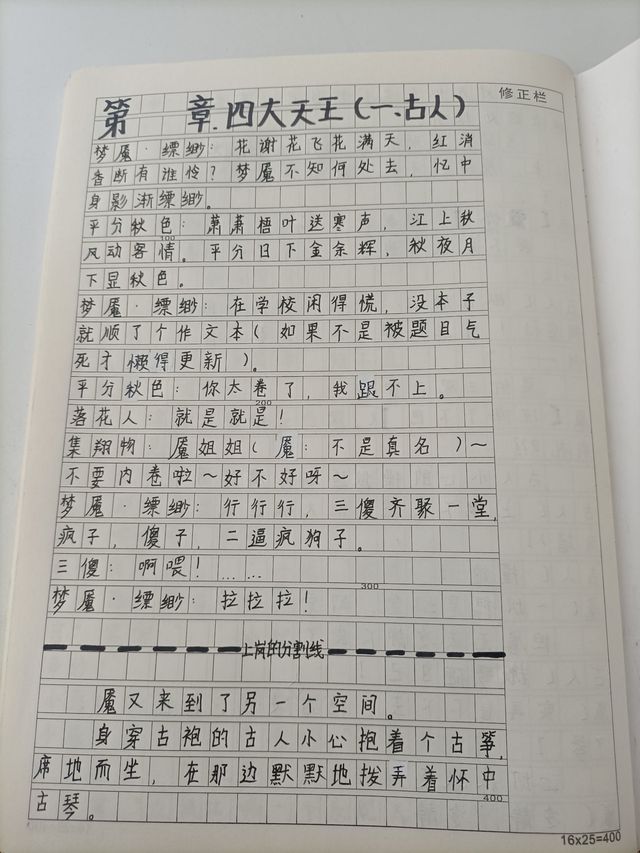 第 章.四大天王(一.古人)
修正栏
梦魇·缥缈:花谢花飞花满天,红消
香断有谁怜?梦魇不知何处去,忆中
身影渐缥缈。
平分秋色:萧萧梧叶送寒声,江上秋
风动客情。平分日下金余辉,秋夜月
100
下显秋色。
梦魇·缥缈:在学校闲得慌,没本子
就顺了个作文本(如果不是被题目气
死才懒得更新)。
平分秋色:你太卷了,我跟不上。
200
落花人:就是就是!
集翔物:魇姐姐(魇:不是真名)~
不要内卷啦~好不好呀~
梦魇·缥缈:行行行,三傻齐聚一堂,
疯子,傻子,二逼疯狗子。
三傻:啊喂!……
300
梦魇·缥缈:拉拉拉!
上岗的分割线
魇又来到了另一个空间。
身穿古袍的古人小心抱着个古筝,
席地而坐,在那边默默地拨弄着怀中
400
古琴。
16x25=400